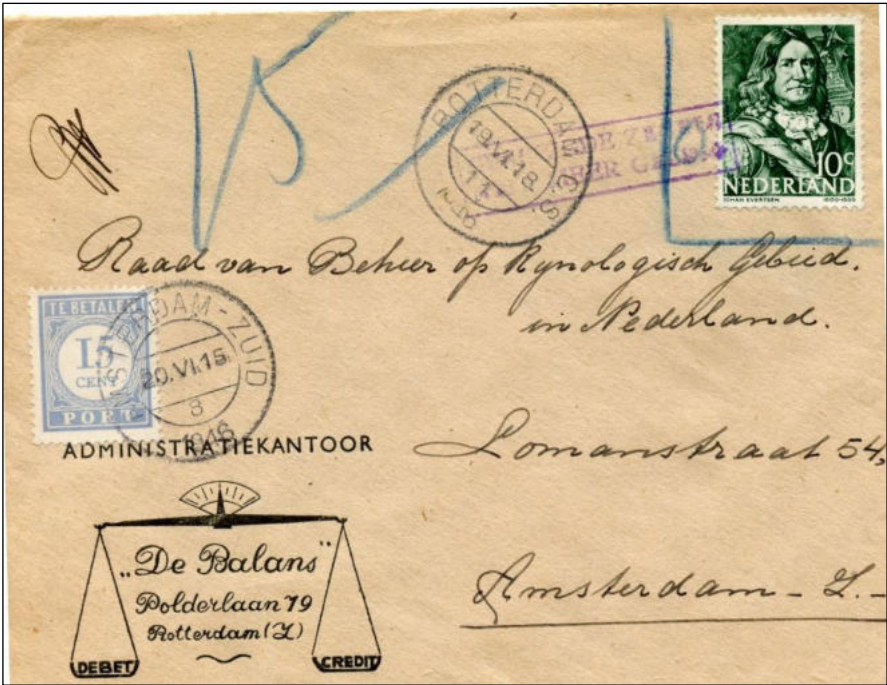 15
ROTTERDAM
19.VI.18
1946
10c
NEDERLAND
JOHAN EVERTSEN 1600-1666
Raad van Beheer op Kynologisch Gebied.
in Nederland.
TE BETALEN
15
CENT
PORT
AMSTERDAM-ZUID
20.VI.15
8
1946
ADMINISTRATIEKANTOOR
Lomanstraat 54,
„De Balans"
Polderlaan 79
Rotterdam (Z)
DEBET
CREDIT
Amsterdam - Z. -